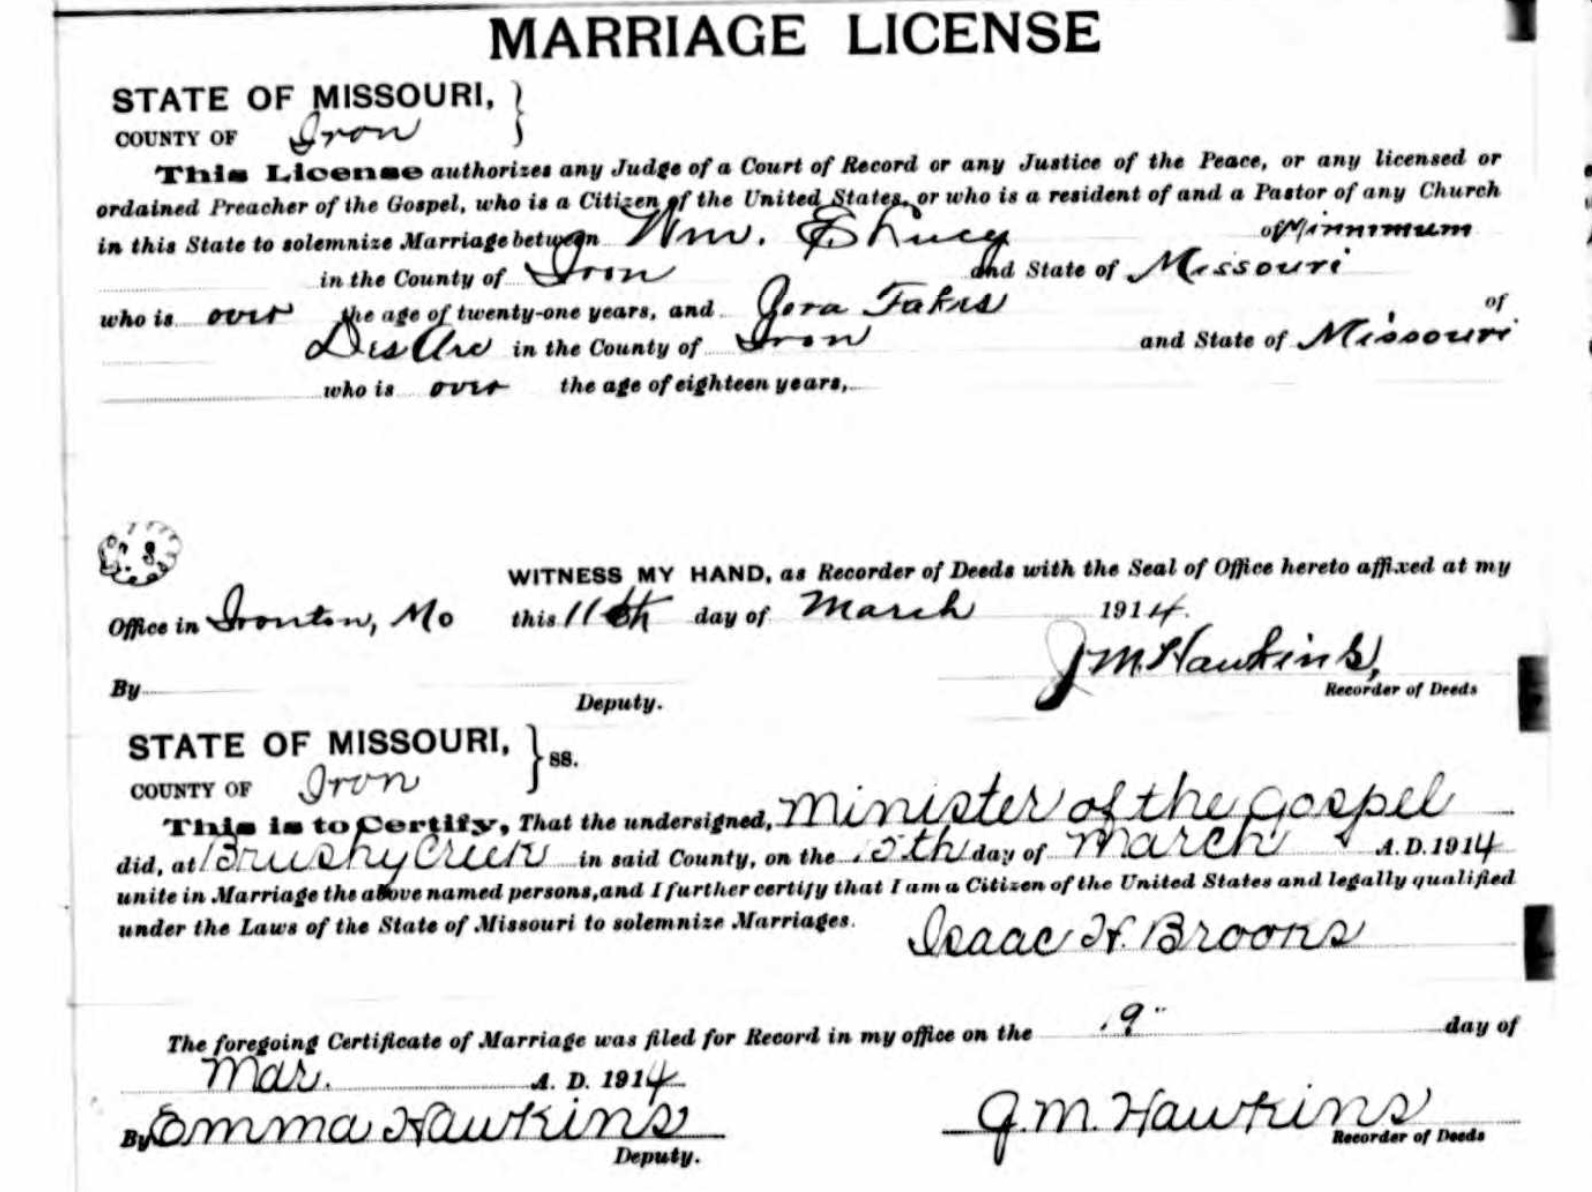 MARRIAGE LICENSE
STATE OF MISSOURI,
COUNTY OF Iron
This License authorizes any Judge of a Court of Record or any Justice of the Peace, or any licensed or
ordained Preacher of the Gospel, who is a Citizen of the United States, or who is a resident of and a Pastor of any Church
in this State to solemnize Marriage between Wm. E Lucy of Minnimum
in the County of Iron and State of Missouri
who is over the age of twenty-one years, and Zora of
Des Arc in the County of Iron and State of Missouri
who is over the age of eighteen years,
Office in Ironton, Mo
WITNESS MY HAND, as Recorder of Deeds with the Seal of Office hereto affixed at my
this 11th day of March 1914.
J M. Hawkins,
By Deputy. Recorder of Deeds
STATE OF MISSOURI, } ss.
COUNTY OF Iron
This is to Certify, That the undersigned, Minister of the Gospel
did, at Brushy Creek in said County, on the day of March A.D. 1914
unite in Marriage the above named persons, and I further certify that I am a Citizen of the United States and legally qualified
under the Laws of the State of Missouri to solemnize Marriages.
Isaac H. Brooks
The foregoing Certificate of Marriage was filed for Record in my office on the day of
Mar. A. D. 1914
By Emma Hawkins Deputy.
J. M. Hawkins Recorder of Deeds